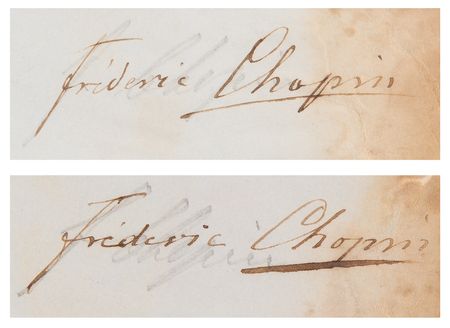 Fréderic Chopin
Fréderic Chopin